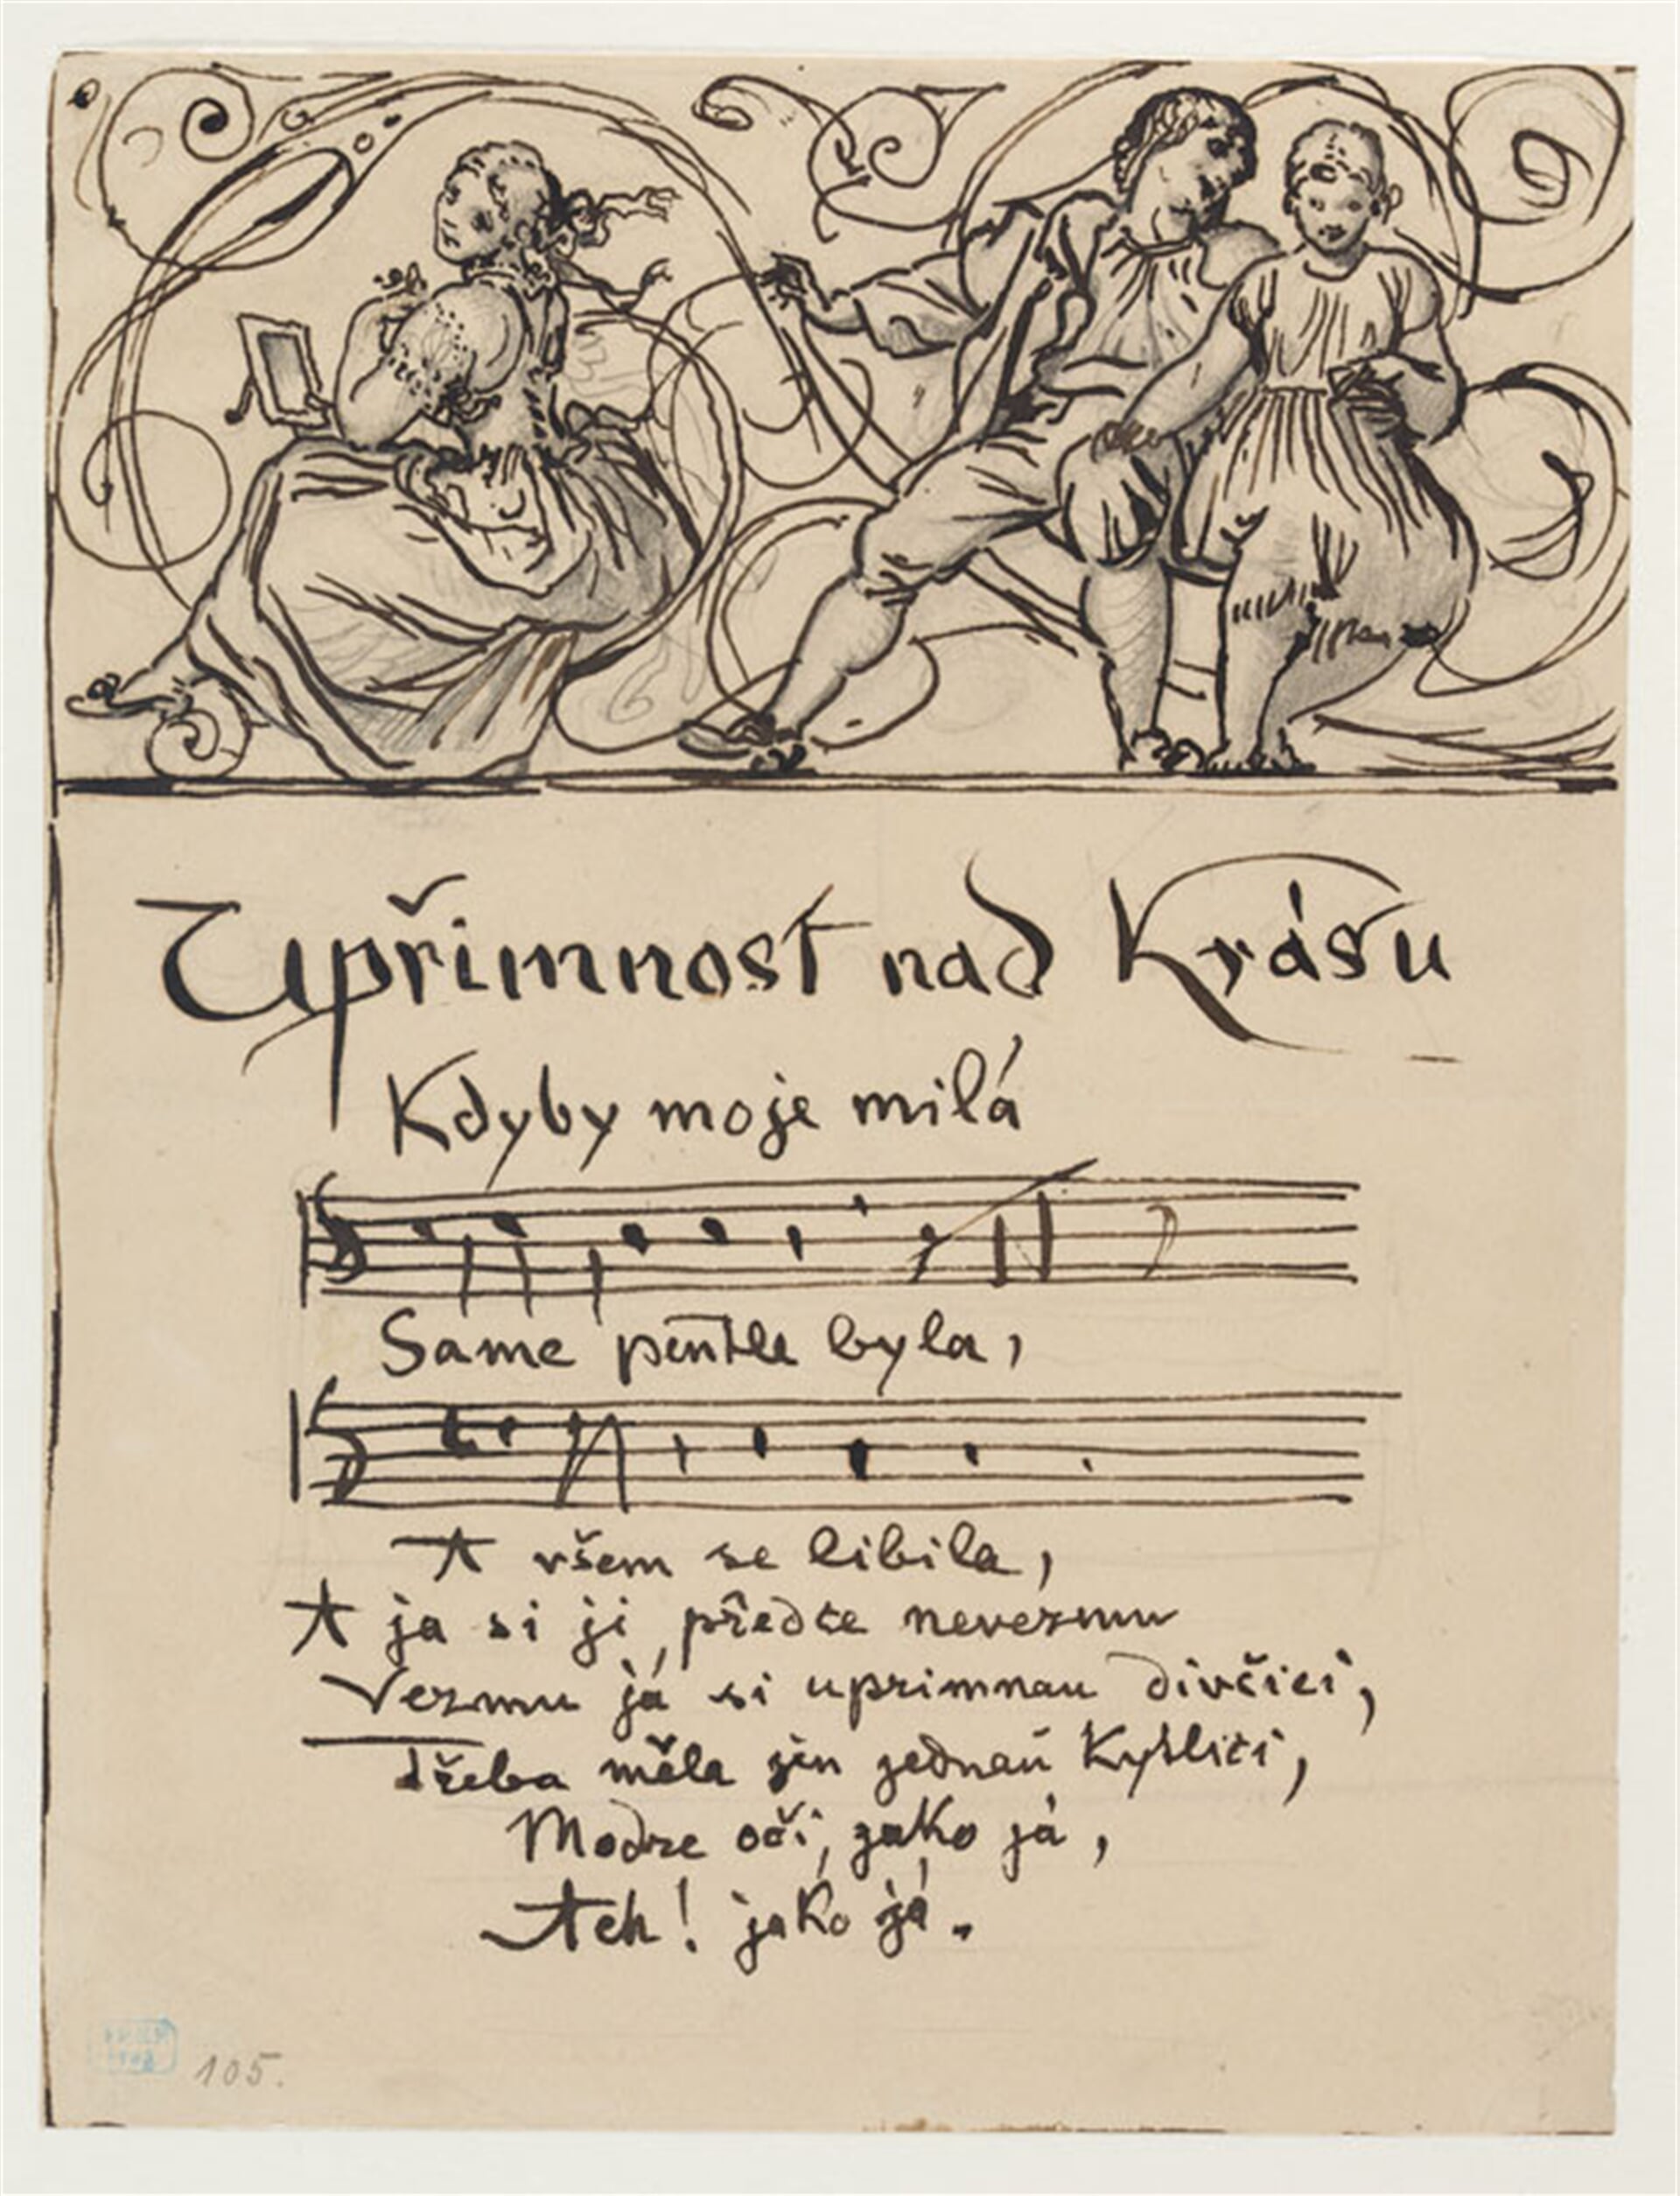 Upřimnost nad Krásu
Kdyby moje milá
Same pentle byla,
A všem se libila,
A ja si ji předce nevezmu
Vezmu já si uprimnau divčici,
Třeba měla jen jednaú Kytlici,
Modre oči, jako já,
Ach! jako já.
105.